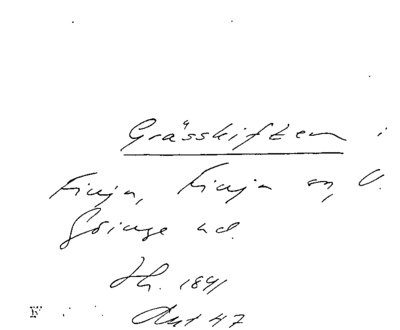 Grässkiften i
Finja, Finja sn, V.
Göinge hd.
Th. 1841
Aut 47